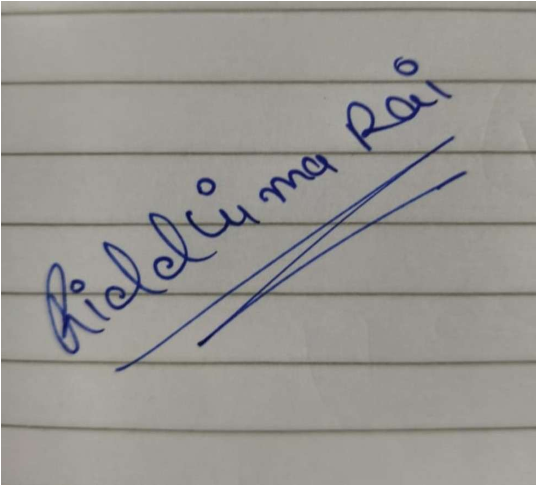 Riddhima Rai